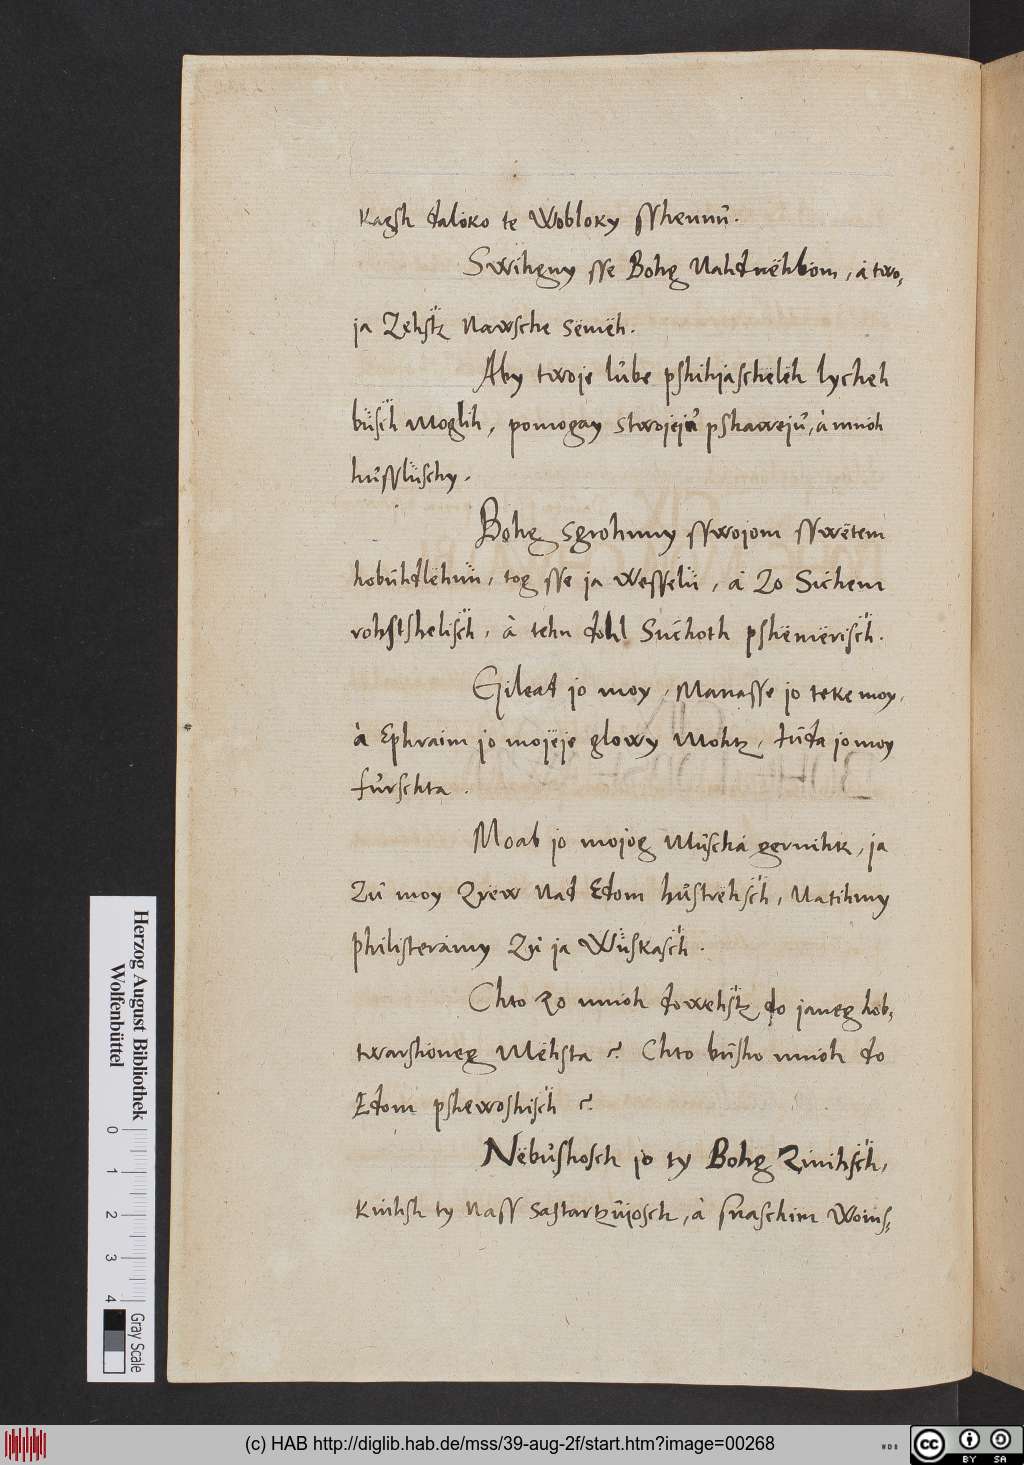 kagsh daloko te Wobloky sshennũ.
Swihgny sse Bohg Nahdnëhbom, á two⸗
ja Zehstz Nawsche sëmëh.
Aby twoje lube pshihjaschëlëh lycheh
busch Moglih, pomogay stwojeju pshaweju, à mnöh
hussluschy.
Bohg sgrohnuy sswojom sswëtem
hobuhdlëhnu, tog sse ja wesselu, á Zo Suchem
rohstshelisch, à tehn dohl Suchoth pshëmërisch.
Gilead jo moy, Manasse jo teke moy,
à Ephraim jo mojeje glowy Mohtz, Juda jo moy
furschta.
Moab jo mojog Muschá gernihk, ja
Zu moy Zrëw Nad Edom hustrëhsch, Natihmy
philisterämy Zu ja Wuskasch.
Chto Zo mnöh dowehstz do janeg hob⸗
twarshoneg Mëhsta? Chto busho mnöh do
Edom pshewoshisch?
Nëbushosch jo ty Bohg Zinihsch,
knihsh ty Nass sastartzujosch, à snaschim Woins⸗
Herzog August Bibliothek
Wolfenbüttel
0 1 2 3 4
Gray Scale
(c) HAB http://diglib.hab.de/mss/39-aug-2f/start.htm?image=00268
WDB
cc BY SA